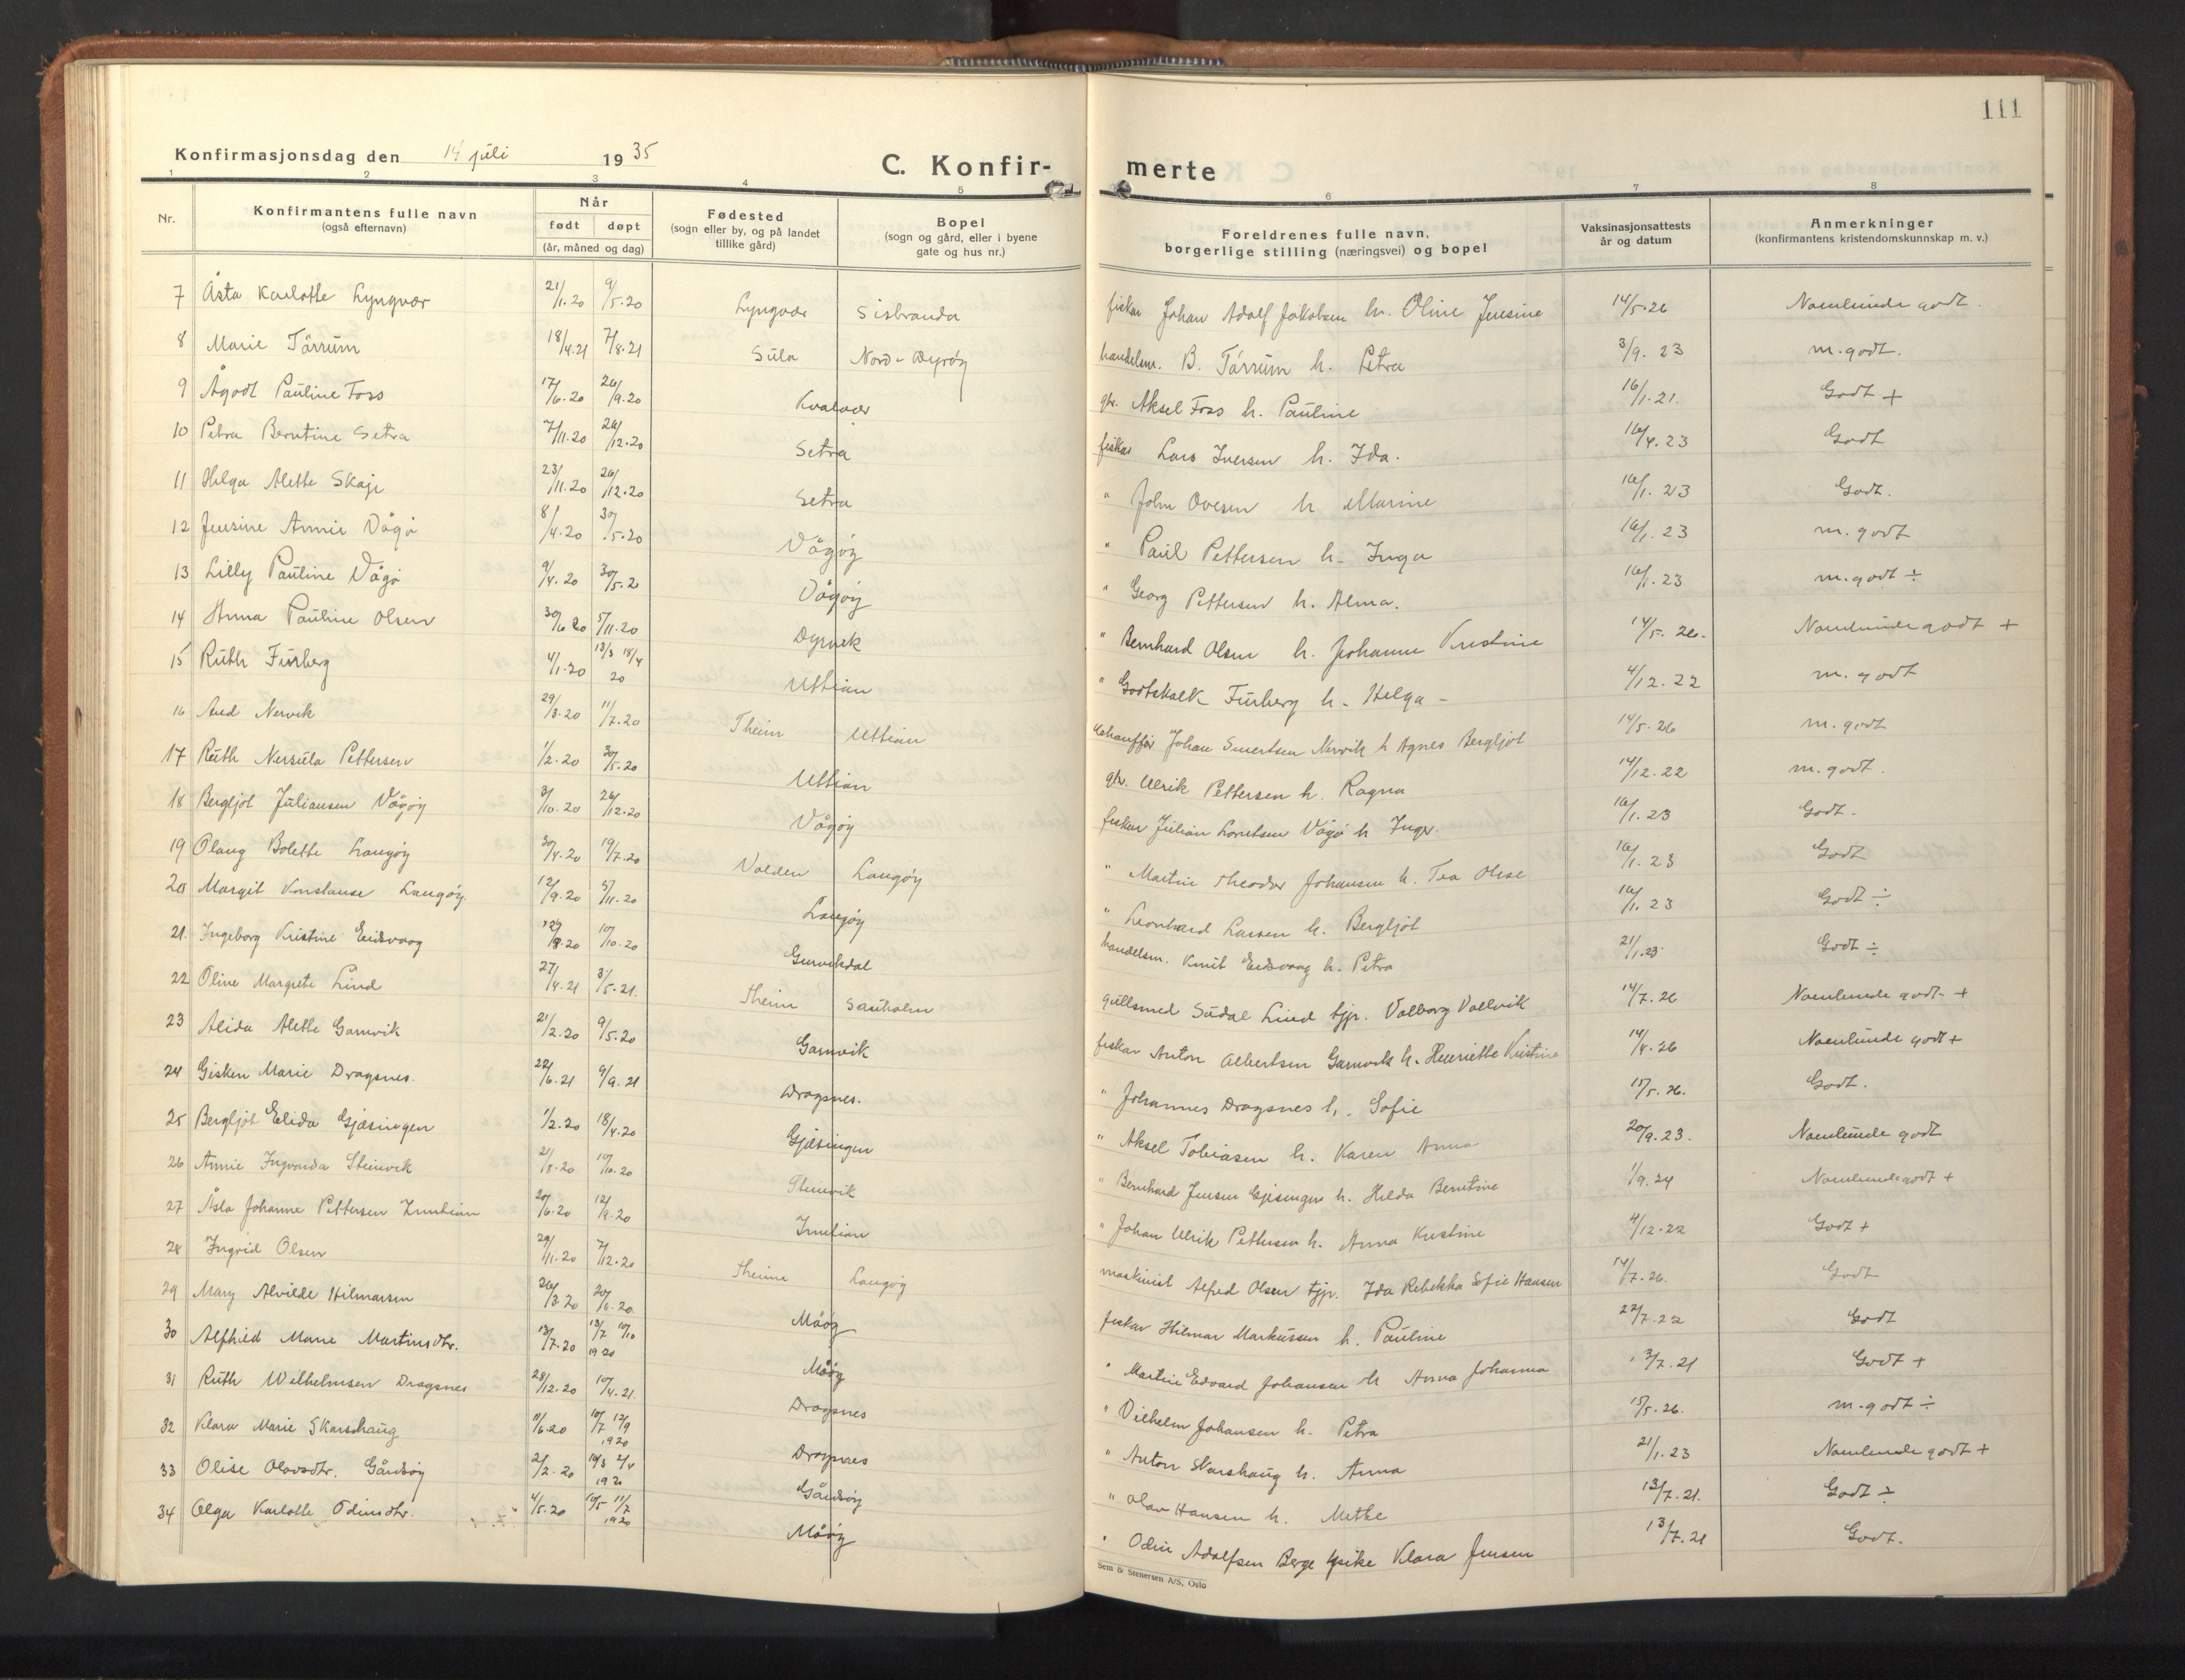 111
Konfirmasjonsdag den 14 juli 1935
C. Konfir- merte
1 2 3 4 5 6 7 8
Nr. | Konfirmantens fulle navn (også efternavn) | Når født døpt (år, måned og dag) | Fødested (sogn eller by, og på landet tillike gård) | Bopel (sogn og gård, eller i byene gate og hus nr.) | Foreldrenes fulle navn, borgerlige stilling (næringsvei) og bopel | Vaksinasjonsattests år og datum | Anmerkninger (konfirmantens kristendomskunnskap m. v.)
7 Åsta Karlotte Lyngvær 21/1.20 9/5.20 Lyngvær Sisbranda fisker Johan Adolf Jakobsen h. Oline Jensine 14/5.26 Noenlunde godt.
8 Marie Tårrum 18/4.21 7/8.21 Sula Nord-Dyrøy handelsm. B. Tårrum h. Petra 3/9.23 m. godt.
9 Ågodt Pauline Foss 17/6.20 26/9.20 Kvalvær gbr. Aksel Foss h. Pauline 16/1.21. Godt +
10 Petra Berntine Setra 7/11.20 26/12.20 Setra fisker Lars Iversen h. Ida. 16/4.23 Godt
11 Helga Alette Skaje 23/11.20 26/12.20 Setra " John Ovesen h Marine 16/1.23 Godt.
12 Jensine Annie Vågø 8/4.20 30/5.20 Vågøy " Paul Pettersen h. Inga 16/1.23 m. godt
13 Lilly Pauline Vågø 9/4.20 30/5.2 Vågøy " Georg Pettersen h. Alma. 16/1.23 m. godt ÷
14 Anna Pauline Olsen 30/6 20 5/11.20 Dyrvik " Bernhard Olsen h. Johanne Kristine 14/5.26. Noenlunde godt +
15 Ruth Furberg 4/1.20 13/3 18/4 20 Uttian " Godtskalk Furberg h. Helga 4/12.22 m. godt
16 Aud Nervik 29/3.20 11/7.20 Theim Uttian chauffør Johan Smertsen Nervik h Agnes Bergljot 14/5.26 m. godt
17 Ruth Nersula Pettersen 1/2.20 30/5.20 Uttian gbr. Ulrik Pettersen h. Ragna 14/12.22 m. godt.
18 Bergljot Juliansen Vågøy 3/10.20 26/12.20 Vågøy fisker Julian Lorntsen Vågø h Inger. 16/1.23 Godt.
19 Olaug Bolette Langøy 30/4.20 19/7.20 Valden Langøy " Martin Theodor Johansen h. Tea Olise 16/1.23 Godt
20 Margit Konstanse Langøy 12/9.20 5/11.20 Langøy " Leonhard Larsen h. Bergljot 16/1.23 Godt ÷
21. Ingeborg Kristine Eidsvaag 12/9.20 10/10.20 Gurvikdal handelsm. Knut Eidsvaag h. Petra 21/1.23. Godt ÷
22 Oline Margrete Lind 27/4.21 3/5.21. Theim Sauholm gullsmed Sudal Lind tjp. Valborg Vollvik 14/7.26 Noenlunde godt +
23 Alida Alette Garnvik 21/2.20 9/5.20 Garnvik fisker Anton Albertsen Garnvik h. Henriette Kristine 14/4.26 Noenlunde godt +
24 Gisken Marie Dragsnes. 22/6.21 9/9.21 Dragsnes. " Johannes Dragsnes h. Sofie 15/5.26. Godt.
25 Bergljot Elida Gjæsingen 1/2.20 18/4.20 Gjæsingen " Aksel Tobiasen h. Karen Anna 20/9.23. Noenlunde godt
26 Annie Ingvarda Steinvik 2/8.20 10/10.20 Steinvik " Bernhard Jensen Gjesingen h. Hilda Berntine 1/9.24 Noenlunde godt +
27 Åsta Johanne Pettersen Inntian 20/6.20 12/9.20 Inntian " Johan Ulrik Pettersen h. Anna Kristine 4/12.22 Godt +
28 Ingrid Olsen 29/11.20 7/12.20 Theime Langøy maskinist Alfred Olsen tjp. Ida Rebekka Sofie Hansen 14/7.26. Godt
29 Mary Alvilde Hilmarsen 26/3.20 20/6.20. Måøy fisker Hilmar Markussen h. Pauline 22/7.22 Godt
30 Alfhild Marie Martinsdtr. 13/7.20 13/7 10/10 1920 Måøy " Martin Edvard Johansen h Anna Johanna 13/7.21 Godt +
31 Ruth Wilhelmsen Dragsnes 28/12.20 10/4.21. Dragsnes " Vilhelm Johansen h. Petra 15/5.26. m. godt ÷
32 Klara Marie Skarshaug 11/6.20 10/7 12/9 1920 Dragsnes " Anton Skarshaug h. Anna 21/1.23 Noenlunde godt +
33 Olise Olavsdtr. Gårdsøy 2/2.20 14/3 2/4 1920 Gårdsøy " Olav Hansen h. Methe 13/7.21. Godt ÷
34 Olga Karlotte Odinsdtr. 4/5.20 10/5 11/7 1920 Måøy " Odin Adolfsen Berge pike Klara Jensen 13/7.21 Godt.
Sem & Stenersen A/S, Oslo